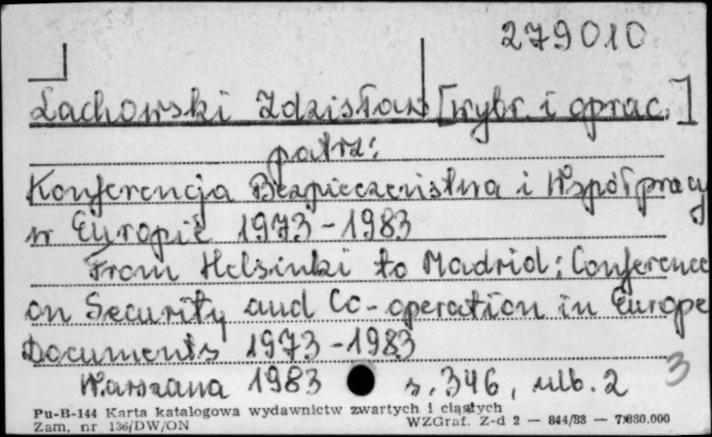 279010
Lachowski Zdzisław [wybr. i oprac.]
patrz:
Konferencja Bezpieczeństwa i Współpracy
w Europie 1973-1983
From Helsinki to Madrid: Conference
on Security and Co-operation in Europe
Documents 1973-1983
Warszawa 1983 s. 346, nlb. 2
3
Pu-B-144 Karta katalogowa wydawnictw zwartych i ciągłych
Zam. nr 136/DW/ON WZGraf. Z-d 2 — 844/83 —